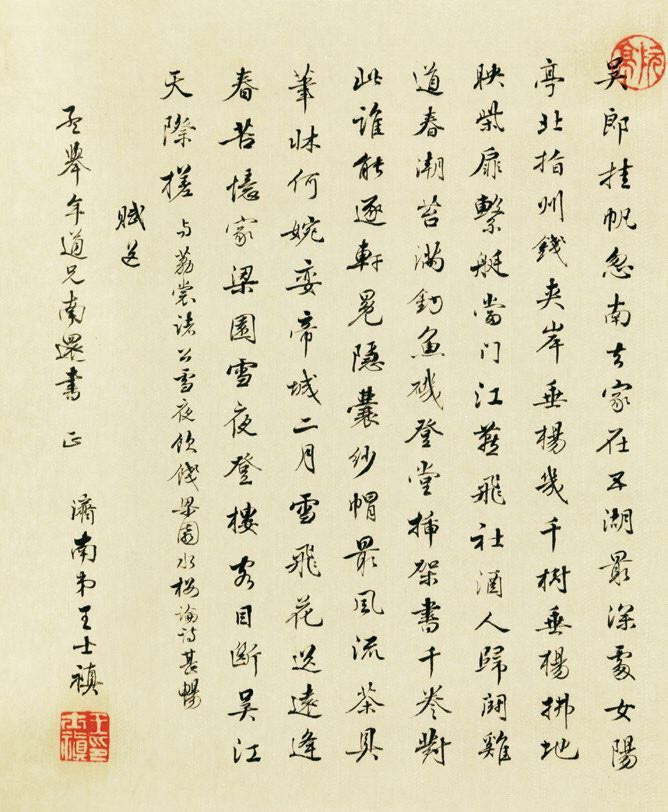 吳郎挂帆忽南去家在五湖最深處女陽
亭北指州錢夾岸垂楊幾千樹垂楊拂地
映柴扉繫艇當門江燕飛社酒人歸鬪雞
道春潮苔滿釣魚磯登堂插架書千卷對
此誰能逐軒冕隱囊紗帽最風流茶具
筆牀何婉孌帝城二月雪飛花送遠逢
春苦憶家梁園雪夜登樓客目斷吳江
天際槎 与荔裳諸公雪夜飲餞梁園水樓論詩甚暢
賦送
孟舉年道兄南還書 正 濟南弟王士禛
阮亭